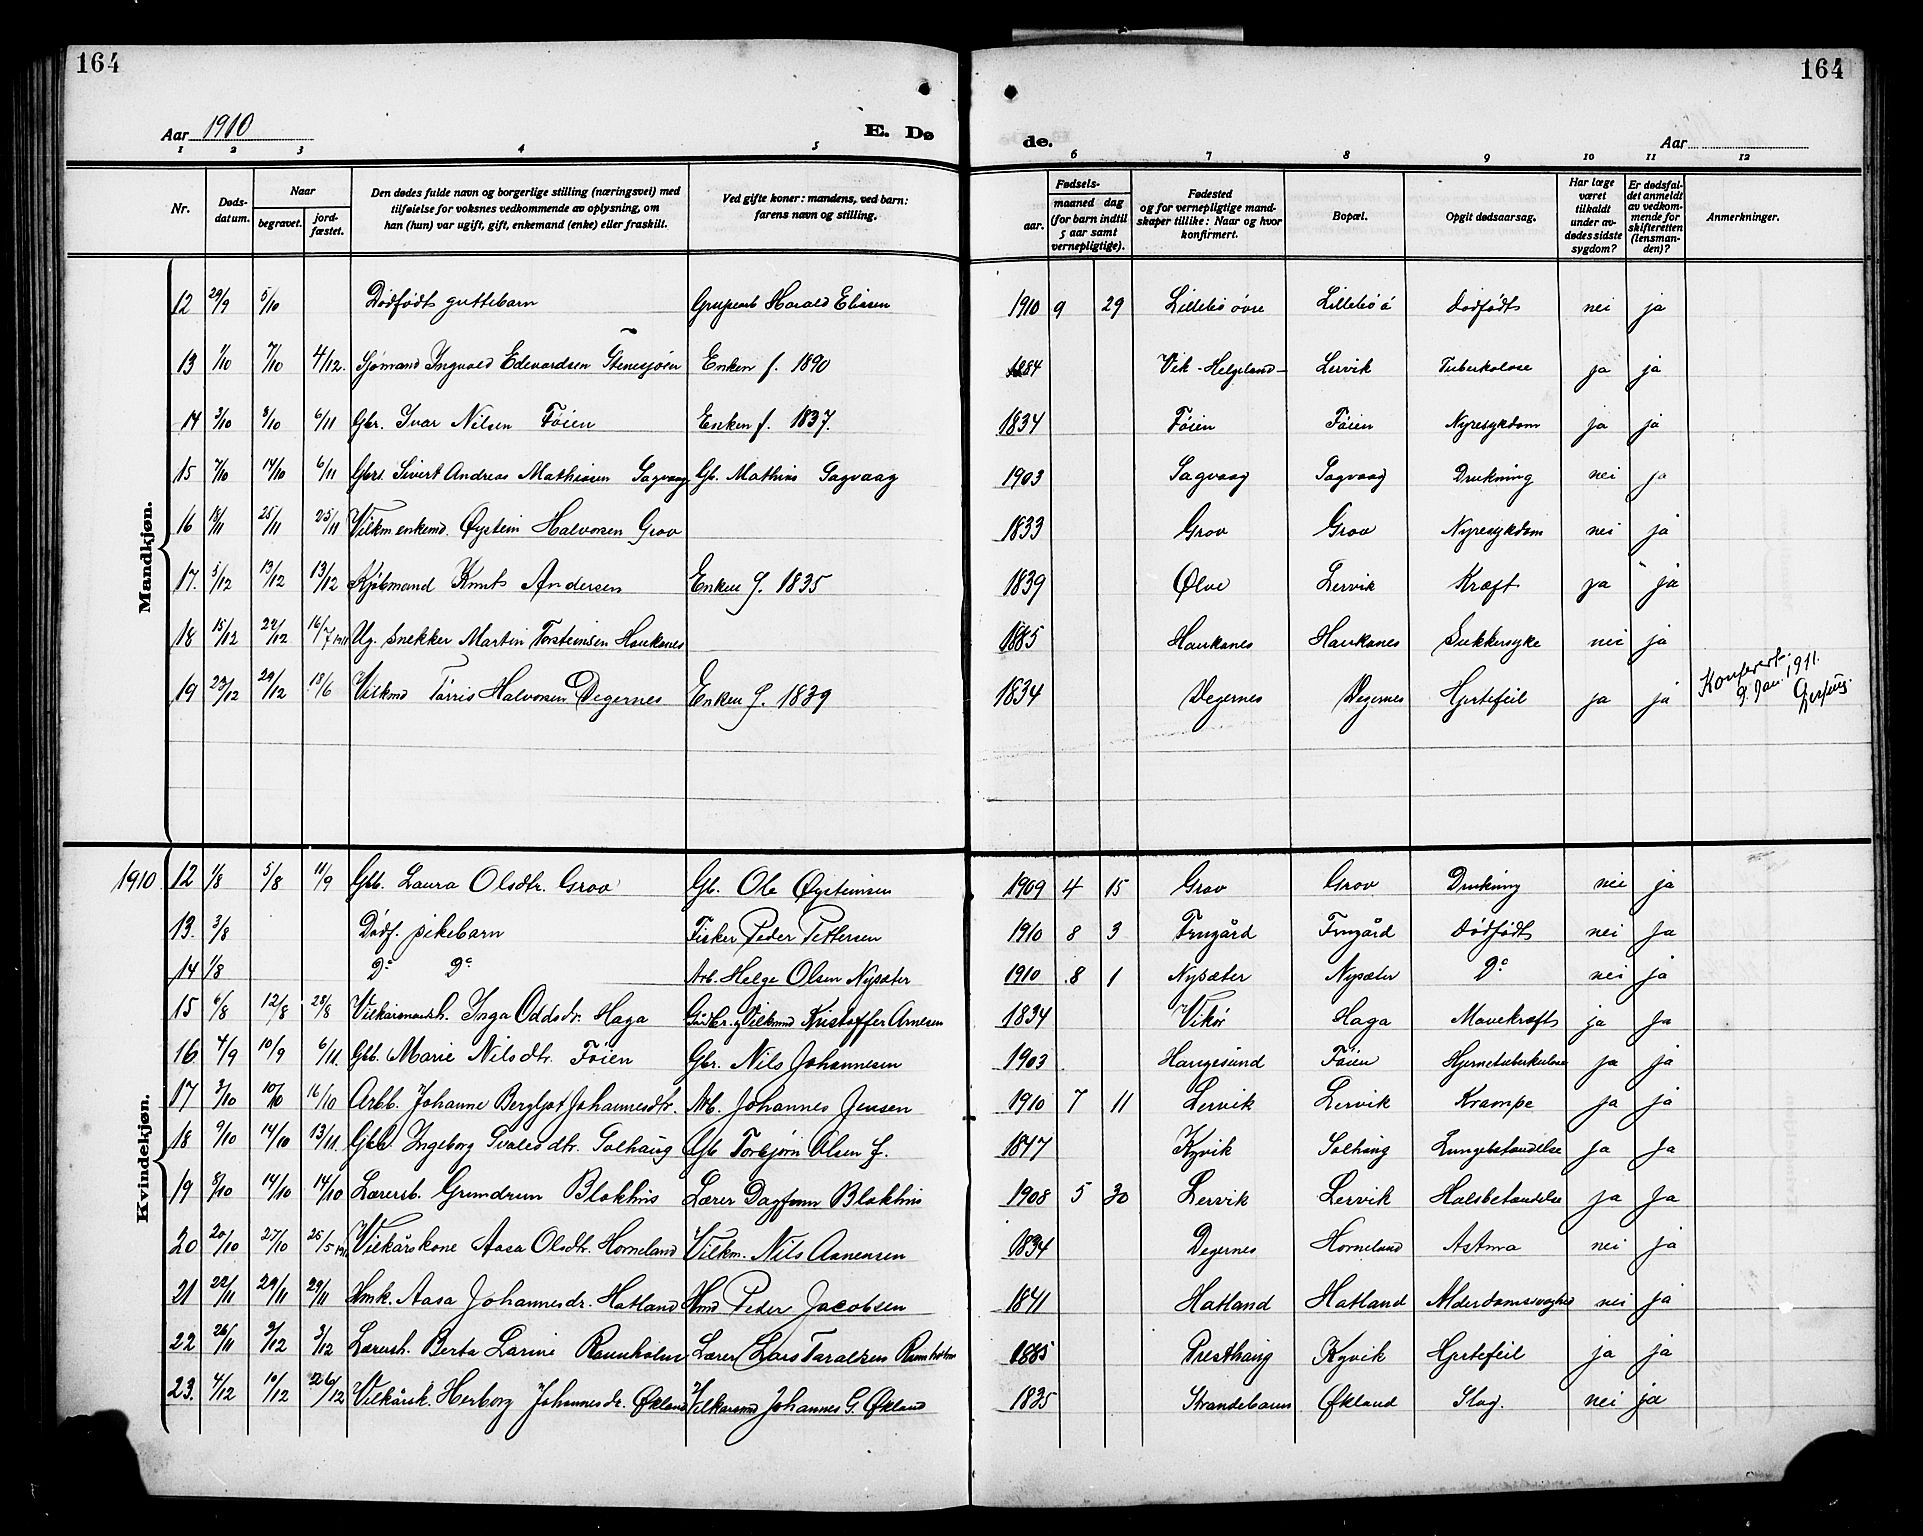 164
164
Aar 1910
E. Dø
de.
Aar
1 2 3 4 5
6 7 8 9 10 11 12
Nr.
Døds-
datum.
Naar
begravet.
jord-
fæstet.
Den dødes fulde navn og borgerlige stilling (næringsvei) med
tilføielse for voksnes vedkommende av oplysning, om
han (hun) var ugift, gift, enkemand (enke) eller fraskilt.
Ved gifte koner: mandens, ved barn:
farens navn og stilling.
Fødsels-
aar.
maaned dag
(for barn indtil
5 aar samt
vernepligtige).
Fødested
og for vernepligtige mand-
skaper tillike: Naar og hvor
konfirmert.
Bopæl.
Opgit dødsaarsag.
Har læge
været
tilkaldt
under av-
dødes sidste
sygdom?
Er dødsfal-
det anmeldt
av vedkom-
mende for
skifteretten
(lensman-
den)?
Anmerkninger.
Mandkjøn.
12 29/9 5/10 Dødfødt guttebarn Harald Eliasen 1910 9 29 Lillebø øvre Lillebø ø dødfødt nei ja
13 1/10 7/10 4/12. Sjømand Ingvald Edvardsen Stensjøen Enken f. 1890 1884 Vik - Helgeland - Lervik Tuberkulose ja ja
14 3/10 8/10 6/11 Gbr. Ivar Nilsen Føien Enken f. 1837. 1834 Føien Føien Nyresykdom ja ja
15 7/10 14/10 6/11 Gbrs. Sivert Andreas Mathiasen Sagvaag Gb. Mathias Sagvaag 1903 Sagvaag Sagvaag Drukning nei ja
16 18/11 25/11 25/11 Vilkm enkemd. Øystein Halvorsen Grov 1833 Grov Grov Nyresykdom nei ja
17. 5/12 13/12 13/12 Kjøbmand Knut Andersen Enken f. 1835 1839 Ølve Lervik Kræft ja ja
18 15/12 22/12 16/7 1911 Ug. snekker Martin Torsteinsen Haukanes 1885 Haukanes Haukanes Sukkersyke nei ja
19 23/12 29/12 18/6 Vilkmd Tørris Halvorsen Degernes Enken f. 1839 1834 Degernes Degernes Hjertefeil ja ja Konferert.
9. Jan. 1911.
Kvindekjøn.
1910 12 1/8 5/8 11/9 Gbb. Laura Olsdtr. Grov Gb. Ole Øysteinsen 1909 4 15 Grov Grov Drukning nei ja
13. 3/8 Dødf. pikebarn Fisker Peder Pettersen 1910 8 3 Frugård Frugård dødfødt nei ja
14 1/8 Do Do Arb. Helge Olsen Nysæter 1910 8 1 Nysæter Nysæter Do nei ja
15 6/8 12/8 28/8 Inga Oddsdr. Haga Vilkmd Kristoffer Arnesen 1834 Vikør Haga Mavekræft ja ja
16 4/9 10/9 6/11 Gbb. Marie Nilsdtr. Føien Gbr. Nils Johannesen 1903 Haugesund Føien Hjernetuberkulose ja ja
17 3/10 10/10 16/10 Arbb. Johanne Bergljot Johannesdtr. Arb. Johannes Jensen 1910 7 11 Lervik Lervik Krampe ja ja
18 9/10 14/10 13/11. Ingeborg Tvalesdtr. Solhaug Gb Torbjørn Olsen f. 1847 Kyvik Solhaug Lungebetændelse ja ja
19 8/10 14/10 14/10 Lærersb. Gundrun Blokhus Lærer Dagfinn Blokhus 1908 5 30 Lervik Lervik Halsbetændelse ja ja
20 20/10 27/10 25/5 1911 Vilkårskone Aasa Olsdtr. Horneland Vilkm. Nils Aanensen 1834 Degernes Horneland Astma nei ja
21 22/11 29/11 29/11 Hmk. Aasa Johannesdr. Hatland Hmd Peder Jacobsen 1841 Hatland Hatland Alderdomssvaghed nei ja
22 26/11 3/12 3/12 Lærersh. Berta Larine Ravnholm Lærer Lars Taraldsen Ravnholm 1885 Presthaug Kyvik Hjertefeil ja ja
23. 4/12 10/12 26/12 Vilkårsk. Herborg Johannesdr. Økland Vilkarsmd Johannes G. Økland 1835 Strandebarm Økland Slag. nei ja